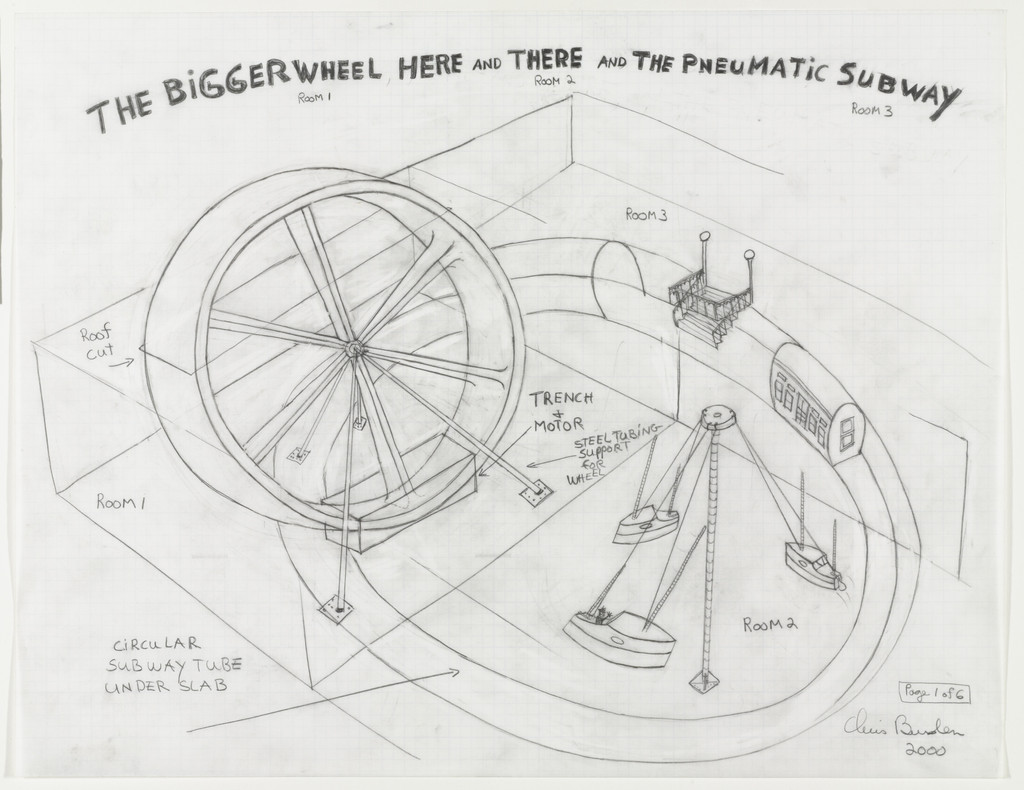 THE BIGGER WHEEL HERE AND THERE AND THE PNEUMATIC SUBWAY
ROOM 1
ROOM 2
ROOM 3
ROOM 3
ROOF
CUT
TRENCH
+
MOTOR
STEEL TUBING
SUPPORT
FOR
WHEEL
ROOM 1
ROOM 2
CIRCULAR
SUBWAY TUBE
UNDER SLAB
Page 1 of 6
Chris Burden
2000